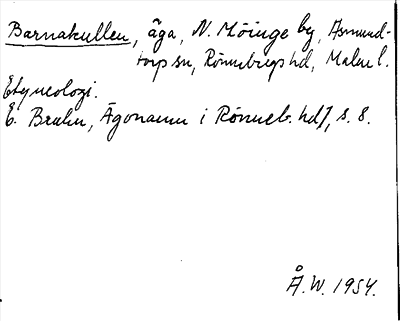 Barnakullen, äga, N. Möinge by, Asmund-
torp sn, Rönnebergs hd, Malm l.
Etymologi.
E. Bruhn, Ägonamn i Rönneb. hd 1, s. 8.
Å. W. 1954.